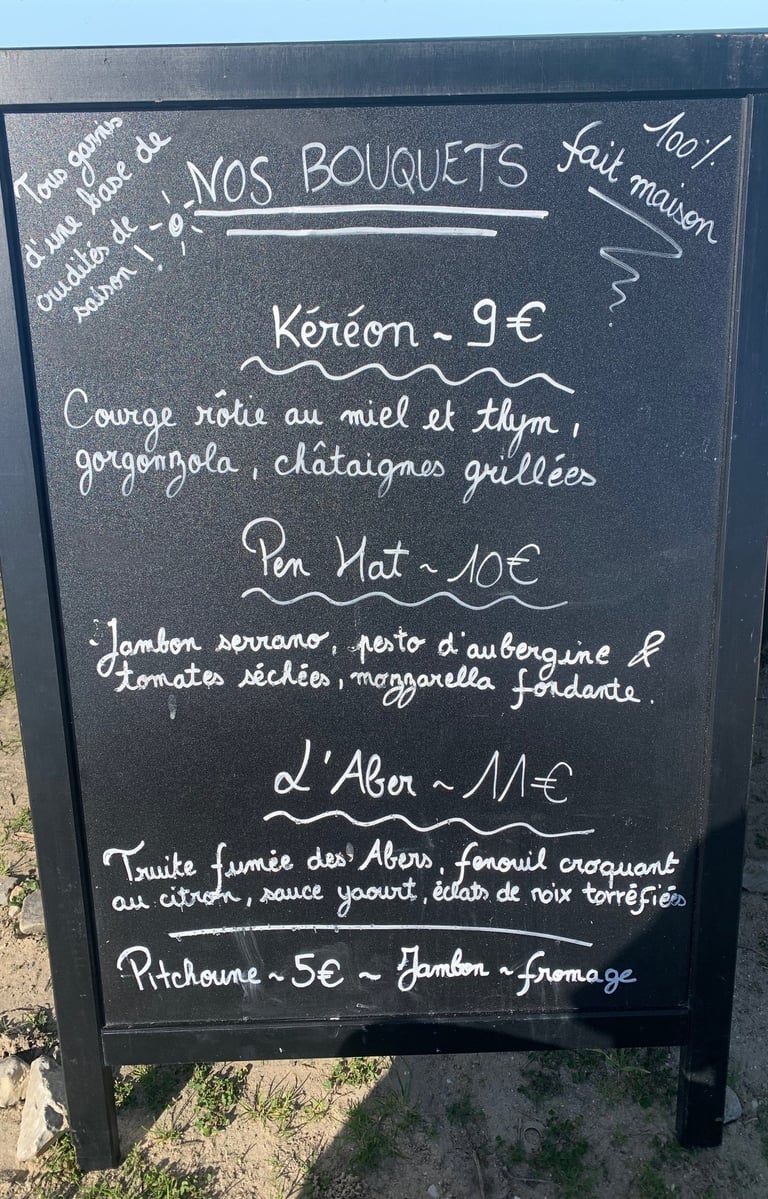 Tous garnis
d'une base de
crudités de
saison !
NOS BOUQUETS
100%
fait maison
Kéréon ~ 9€
Courge rôtie au miel et thym,
gorgonzola, châtaignes grillées
Pen Hat ~ 10€
Jambon serrano, pesto d'aubergine &
tomates séchées, mozzarella fondante.
L'Aber ~ 11€
Truite fumée des Abers, fenouil croquant
au citron, sauce yaourt, éclats de noix torréfiées
Pitchoune ~ 5€ ~ Jambon ~ fromage